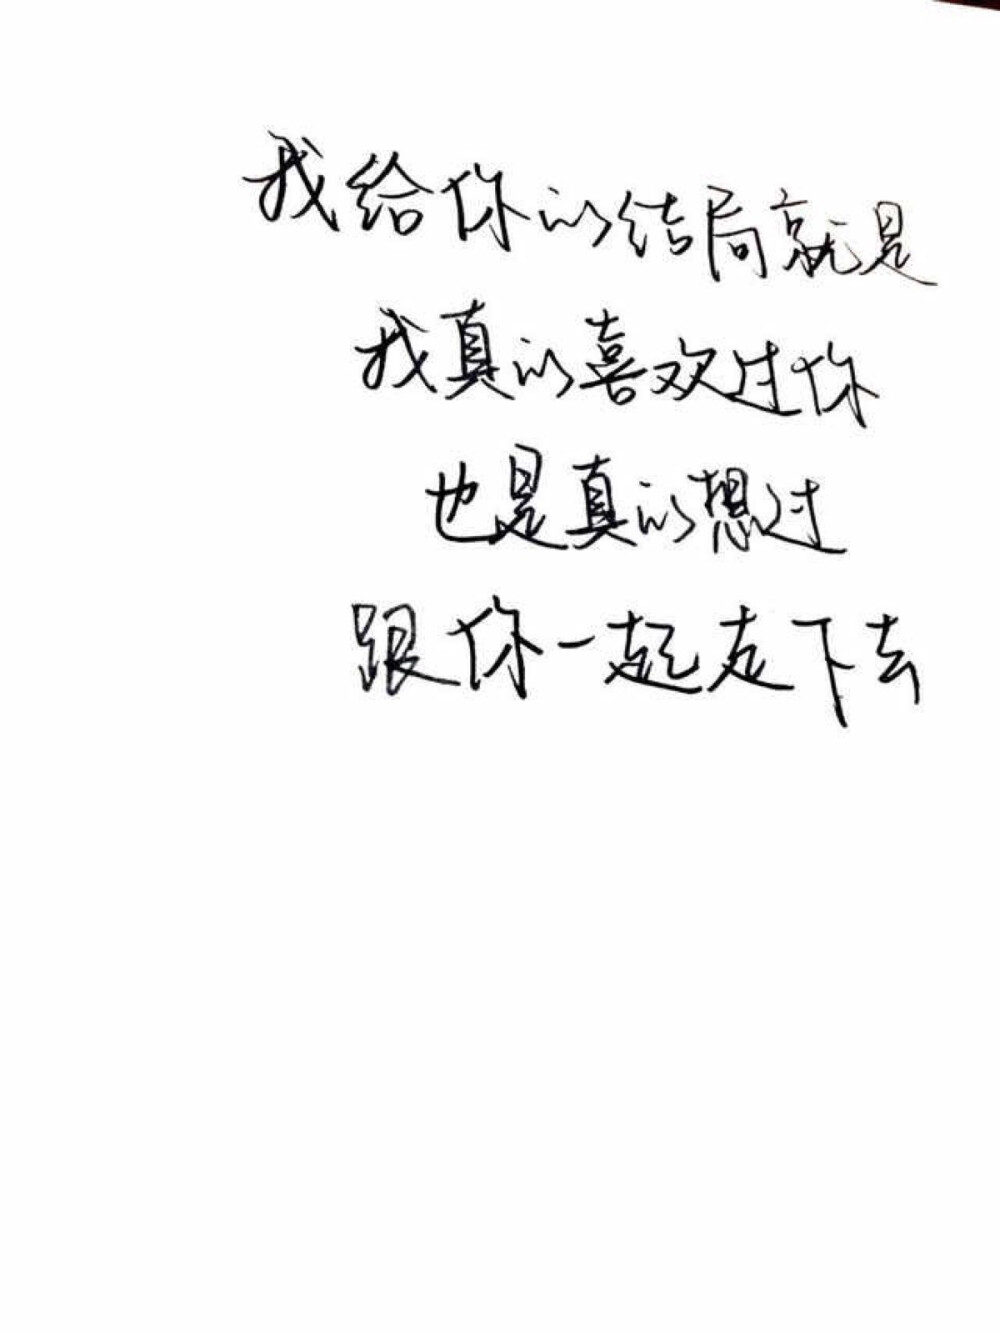 我给你的结局就是
我真的喜欢过你
也是真的想过
跟你一起走下去